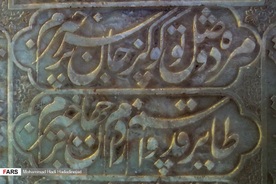 مژده وصل تو کو کز سر جان برخیزم
طایر قدسم و از دام جهان برخیزم
FARS